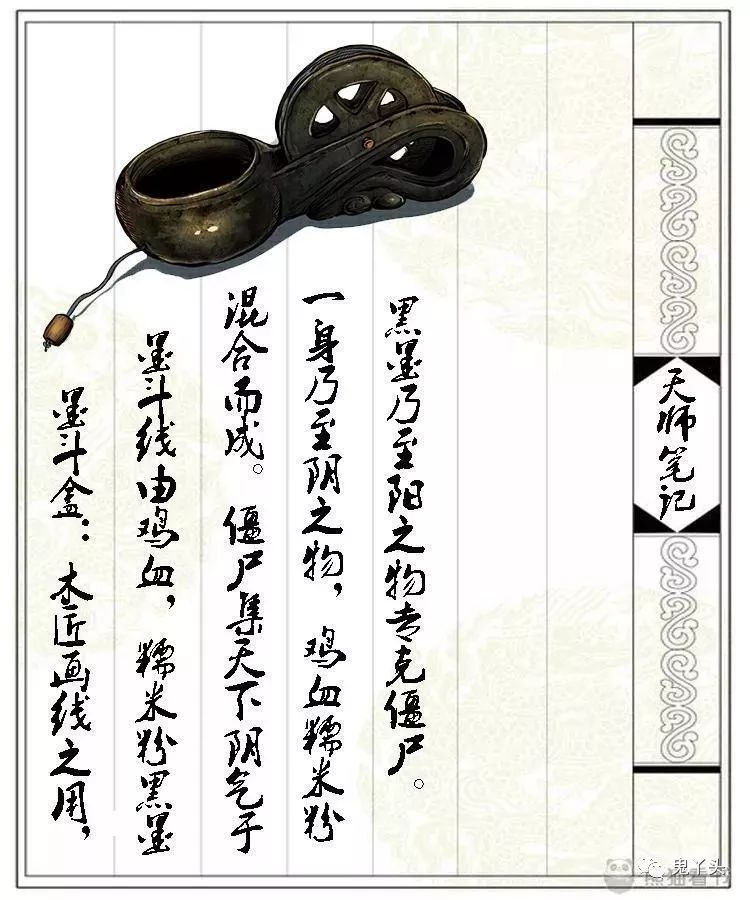 天师笔记
墨斗盒：木匠画线之用，
墨斗线由鸡血，糯米粉黑墨
混合而成。僵尸集天下阴气于
一身乃至阴之物，鸡血糯米粉
黑墨乃至阳之物专克僵尸。
鬼丫头
熊猫看书